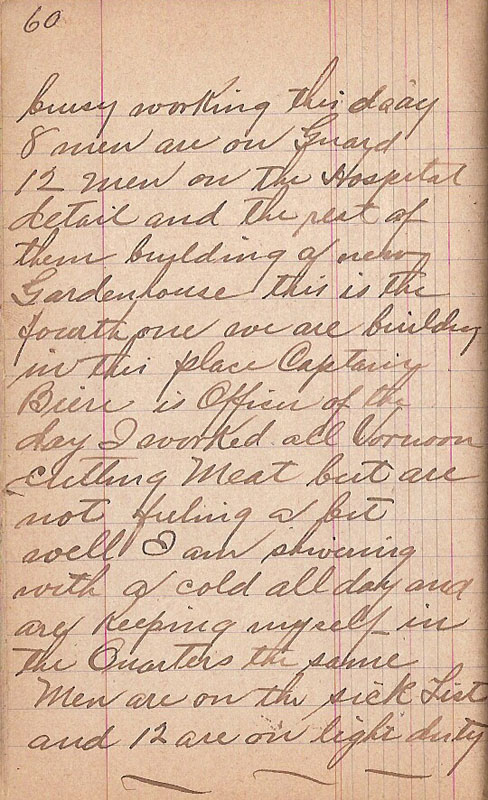 60
busy working this daay
8 men are on Guard
12 men on the Hospetal
detail and the rest of
them building a new
Gardenhouse this is the
fourth one we are building
in this place Captain
Biere is Officer of the
day I worked all Vornoon
cutting Meat but are
not feeling a bit
well I am shivering
with a cold all day and
are keeping myself in
the Quarters the same
Men are on the sick List
and 12 are on light duty